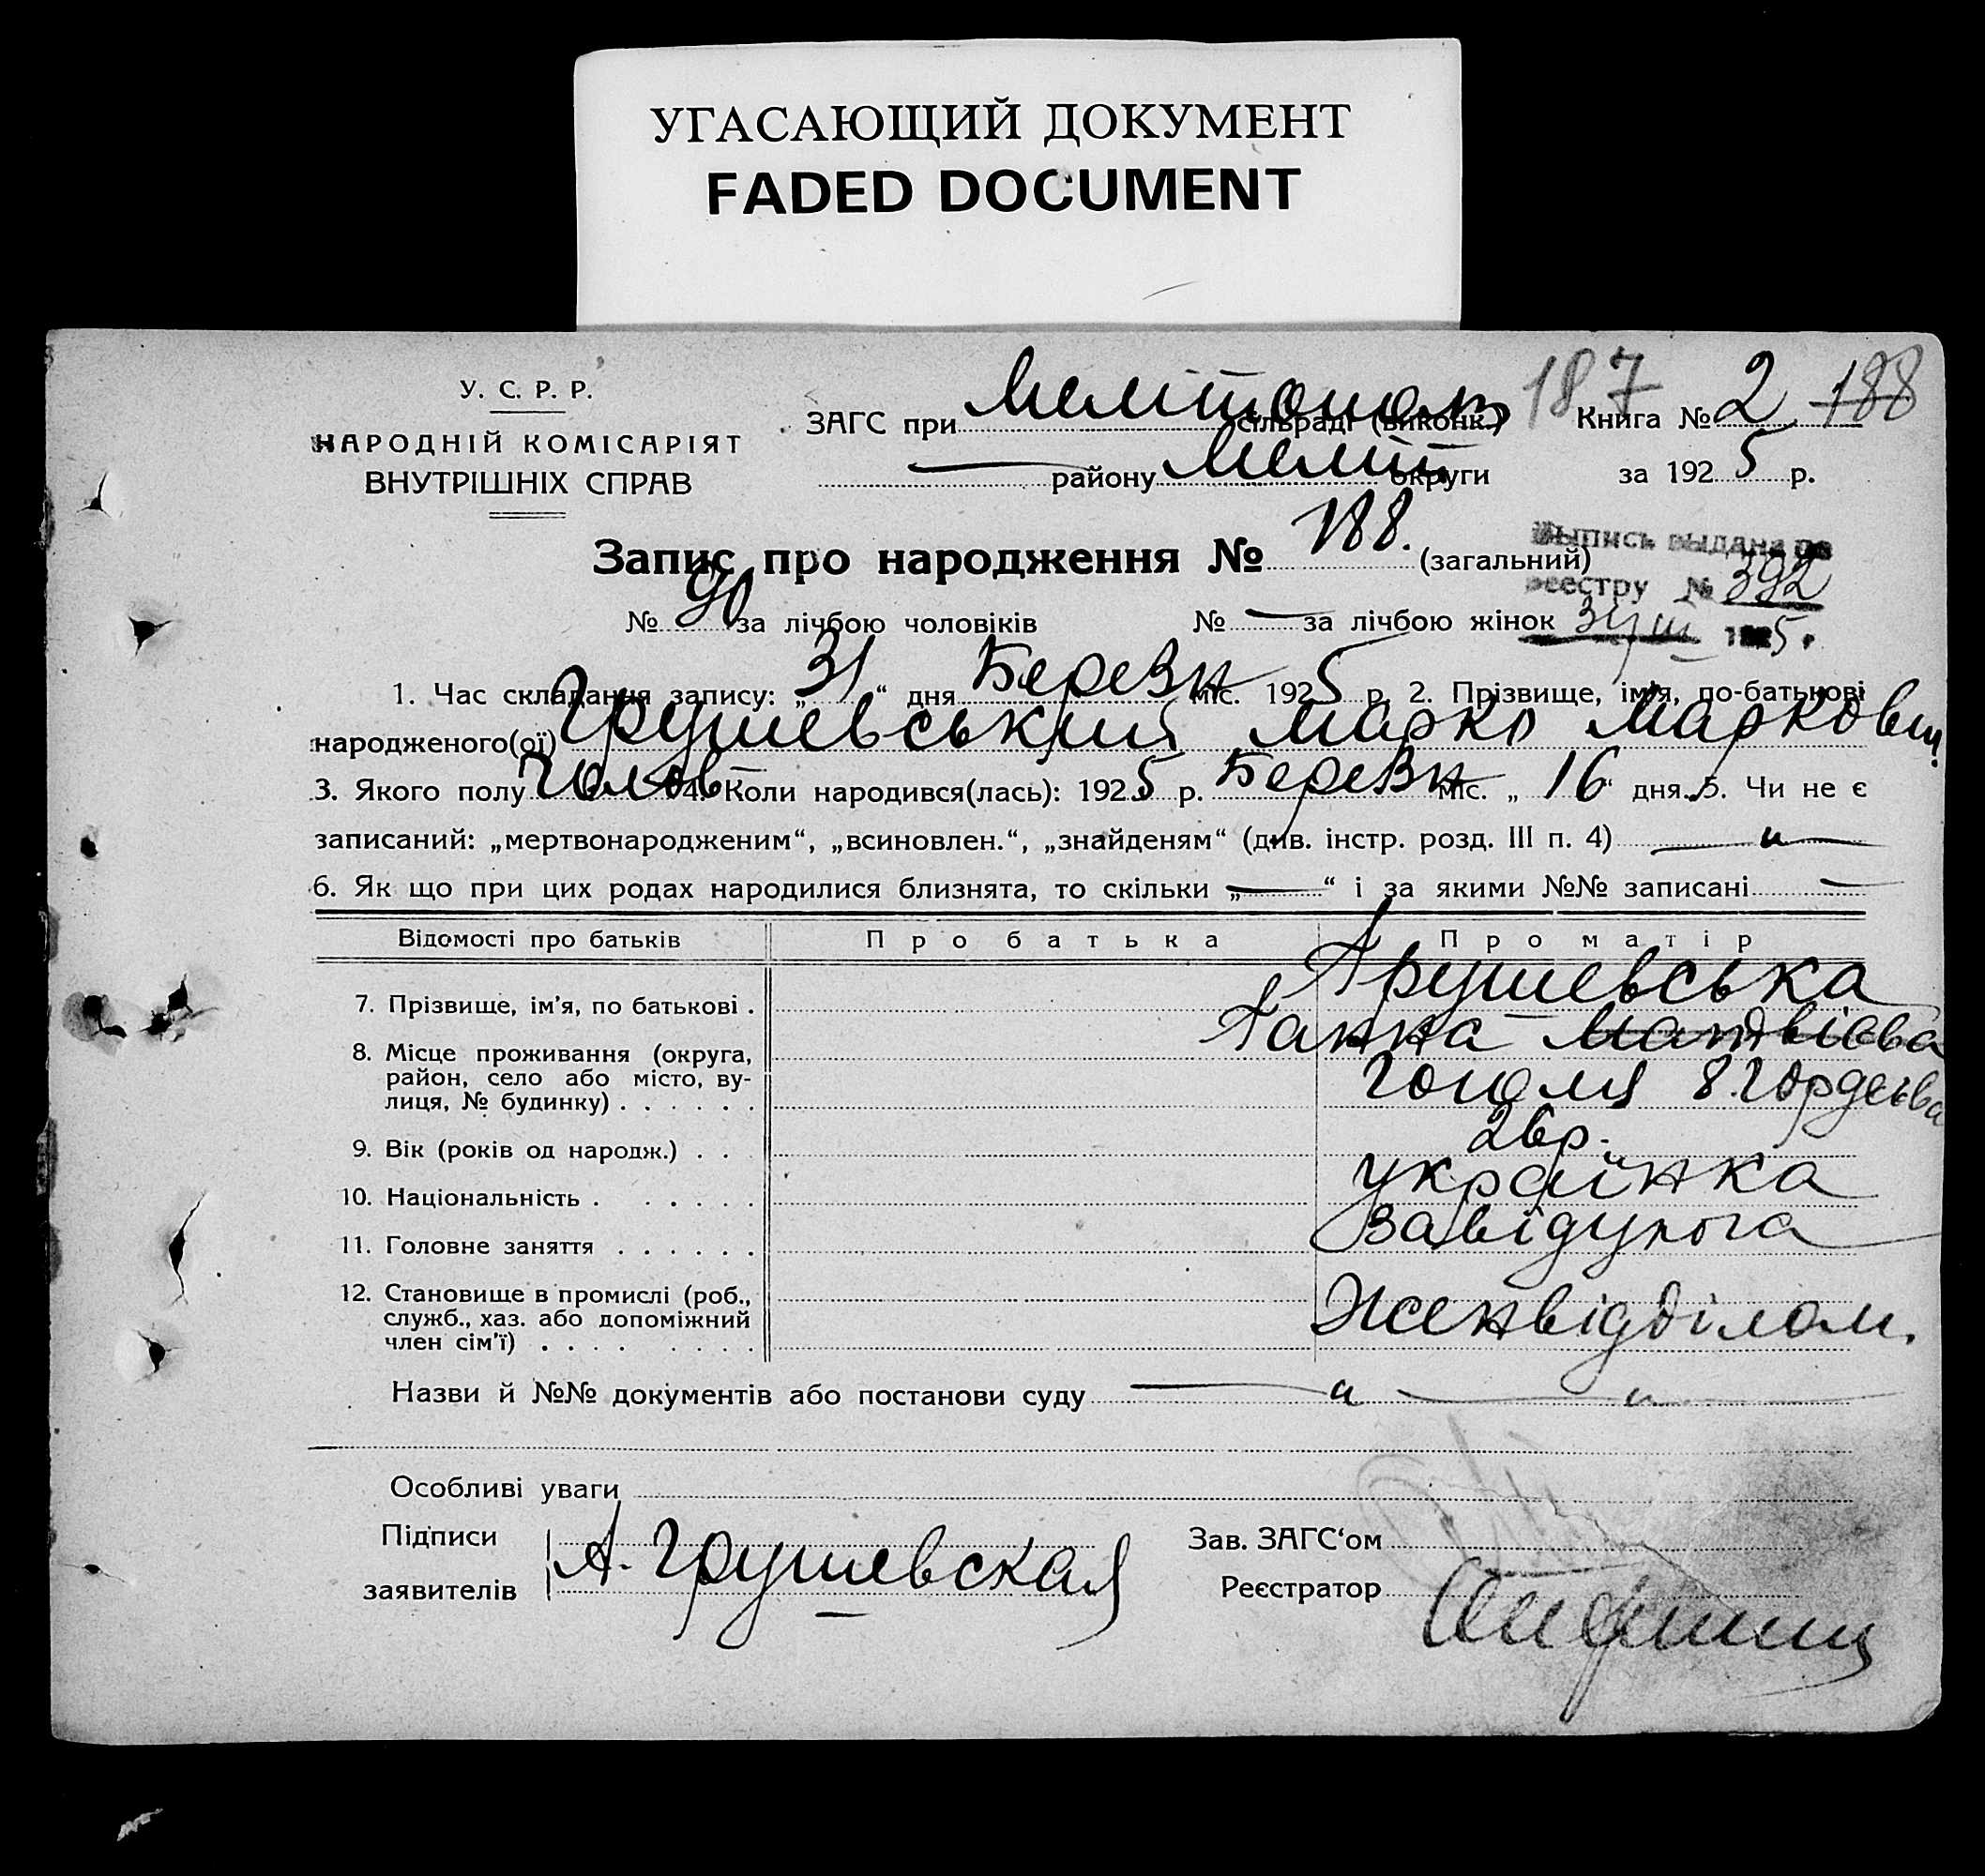 УГАСАЮЩИЙ ДОКУМЕНТ
FADED DOCUMENT
У. С. Р. Р.
НАРОДНІЙ КОМІСАРІЯТ
ВНУТРІШНІХ СПРАВ
ЗАГС при Мелітополь сільраді (виконк.)
187 Книга № 2 188
— району Меліт округи за 1925 р.
Запис про народження № 188. (загальний)
Выпись выдана по
реестру № 392
31/III 1925 г
№ 90 за лічбою чоловіків № — за лічбою жінок
1. Час складання запису: „31“ дня Березн міс. 1925 р. 2. Прізвище, ім'я, по-батькові
народженого(ої) Грушевський Марко Маркович
3. Якого полу Чолов 4. Коли народився(лась): 1925 р. Березн міс. „16“ дня. 5. Чи не є
записаний: „мертвонародженим“, „всиновлен.“, „знайденям“ (див. інстр. розд. III п. 4) — „ —
6. Як що при цих родах народилися близнята, то скільки „—“ і за якими №№ записані —
Відомості про батьків Про батька Про матір
7. Прізвище, ім'я, по батькові . Грушевська
Ганна Матвієва
8. Місце проживання (округа,
район, село або місто, ву-
лиця, № будинку) . . . . . . Гоголя 8. Гордєєва
9. Вік (років од народж.) . . . 26 р.
10. Національність . . . . . . українка
11. Головне заняття . . . . . . Завідуюча
12. Становище в промислі (роб.,
служб., хаз. або допоміжний
член сім'ї) . . . . . . . . Женвідділом.
Назви й №№ документів або постанови суду — „ — „ —
Особливі уваги
Підписи
заявителів А. Грушевская
Зав. ЗАГС‘ом
Реєстратор